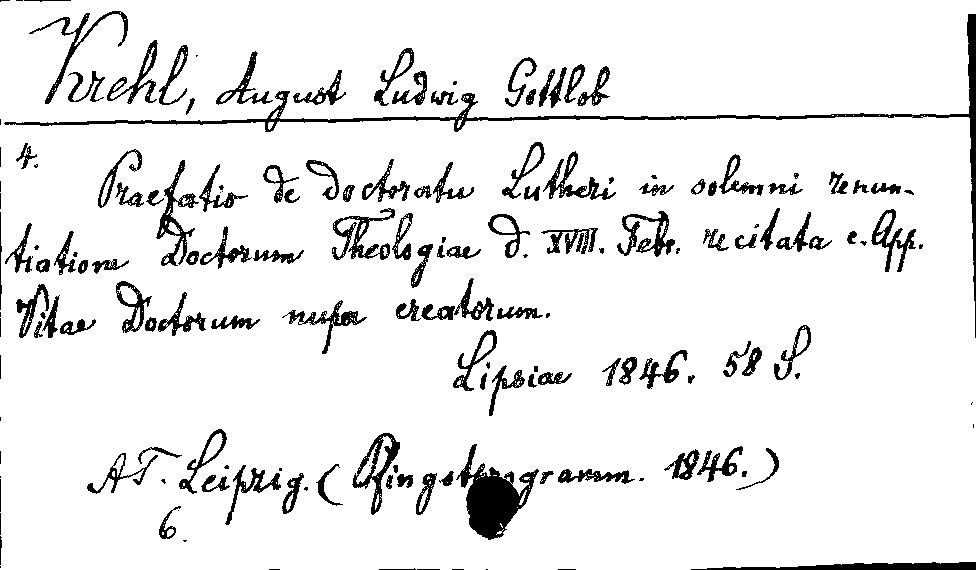 Krehl, August Ludwig Gottlob
4.
Praefatio de doctoratu Lutheri in solemni renun-
tiatione Doctorum Theologiae d. XVIII. Febr. recitata c. App.
Vitae Doctorum nuper creatorum.
Lipsiae 1846. 58 S.
AT. Leipzig. (Pfingstprogramm. 1846.)
6.